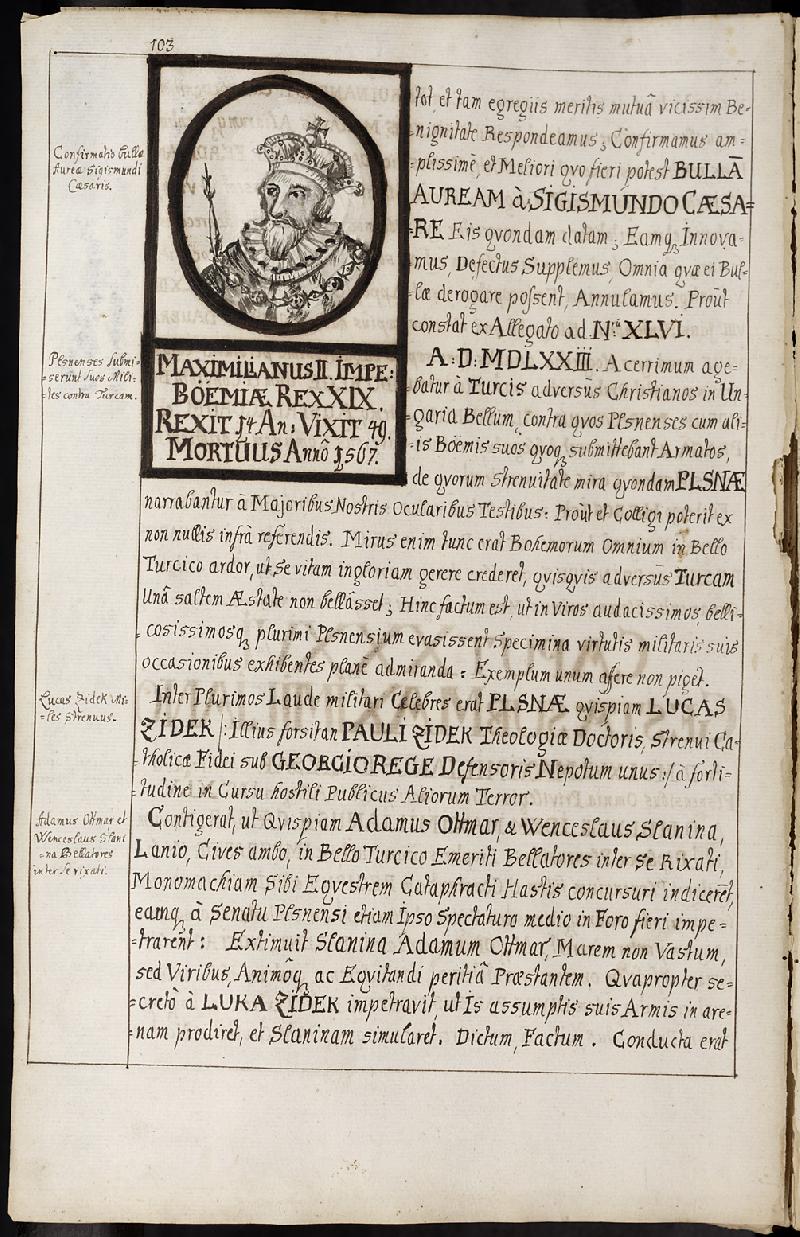 103
Confirmatio bullæ
Aureæ Sigismundi
Cæsaris.
tot et tam egregiis meritis mutuâ vicissim Be-
nignitate Respondeamus; Confirmamus am=
plissimè, et Meliori qvo fieri potest BULLÃ
AUREAM à SIGISMUNDO CÆSA=
=RE Eis qvondam datam; Eamq; Innova=
mus, Defectus Supplemus, Omnia qvæ ei Bul=
læ derogare possent, Annulamus. Proùt
constat ex Allegato ad N.º XLVI.
MAXIMILIANUS II. IMPE:
BÖEMIÆ REX XIX.
REXIT 14 An: VIXIT 49.
MORTŨUS Annô 1567.
Plsnenses submi=
=serũnt suos Mili=
=tes contra Turcam.
A: D: MDLXXIII. Acerrimum age=
batur à Turcis adversũs Christianos in Un=
garia Bellum, contra qvos Plsnenses cum ali=
=is Böemis suos qvoq; submittebant Armatos,
de qvorum strenuitate mira qvondam PLSNÆ
narrabantur à Majoribus Nostris Ocularibus Testibus: Proùt et Colligi poterit ex
non nullis infrà referendis. Mirus enim tunc erat Bohemorum Omnium in Bello
Turcico ardor, ut se vitam ingloriam gerere crederet, qvisqvis adversũs Turcam
Unâ saltem Æstate non bellâsset; Hinc factum est, ut in Viros audacissimos, belli=
=cosissimosq; plurimi Plsnensium evasissent Specimina virtutis militaris suis
occasionibus exhibentes planè admiranda: Exemplum unum afere non piget.
Lucas Zidek Mi=
=les strenuus.
Inter Plurimos Laude militari Celebres erat PLSNÆ qvispiam LUCAS
ZIDEK /: Illius forsitan PAULI ZIDEK Theologiæ Doctoris, Strenui Ca=
=tholicæ Fidei sub GEORGIO REGE Defensoris Nepotum unus :/ à forti=
=tudine in Cursu hostili Publicus Aliorum Terror.
Adamus Ottmar et
Wenceslaus Slani
=na Bellatores
inter se rixati.
Contigerat, ut Qvispiam Adamus Ottmar, & Wenceslaus Slanina,
Lanio, Cives ambo, in Bello Turcico Emeriti Bellatores inter se Rixati,
Monomachiam Sibi Eqvestrem Cataphracti Hastis concursuri indicerẽt,
eamq; à Senatu Plsnensi etiam Ipso Spectaturo medio in Foro fieri impe=
=trarẽnt: Extimuit Slanina Adamum Ottmar, Marem non Vastum,
sed Viribus, Animôq; ac Eqvitandi peritiâ Præstantem. Qvapropter se=
=cretò à LUKA ZIDEK impetravit, ut Is assumptis suis Armis in are=
=nam prodiret, et Slaninam simularet. Dictum, Factum. Conducta erat